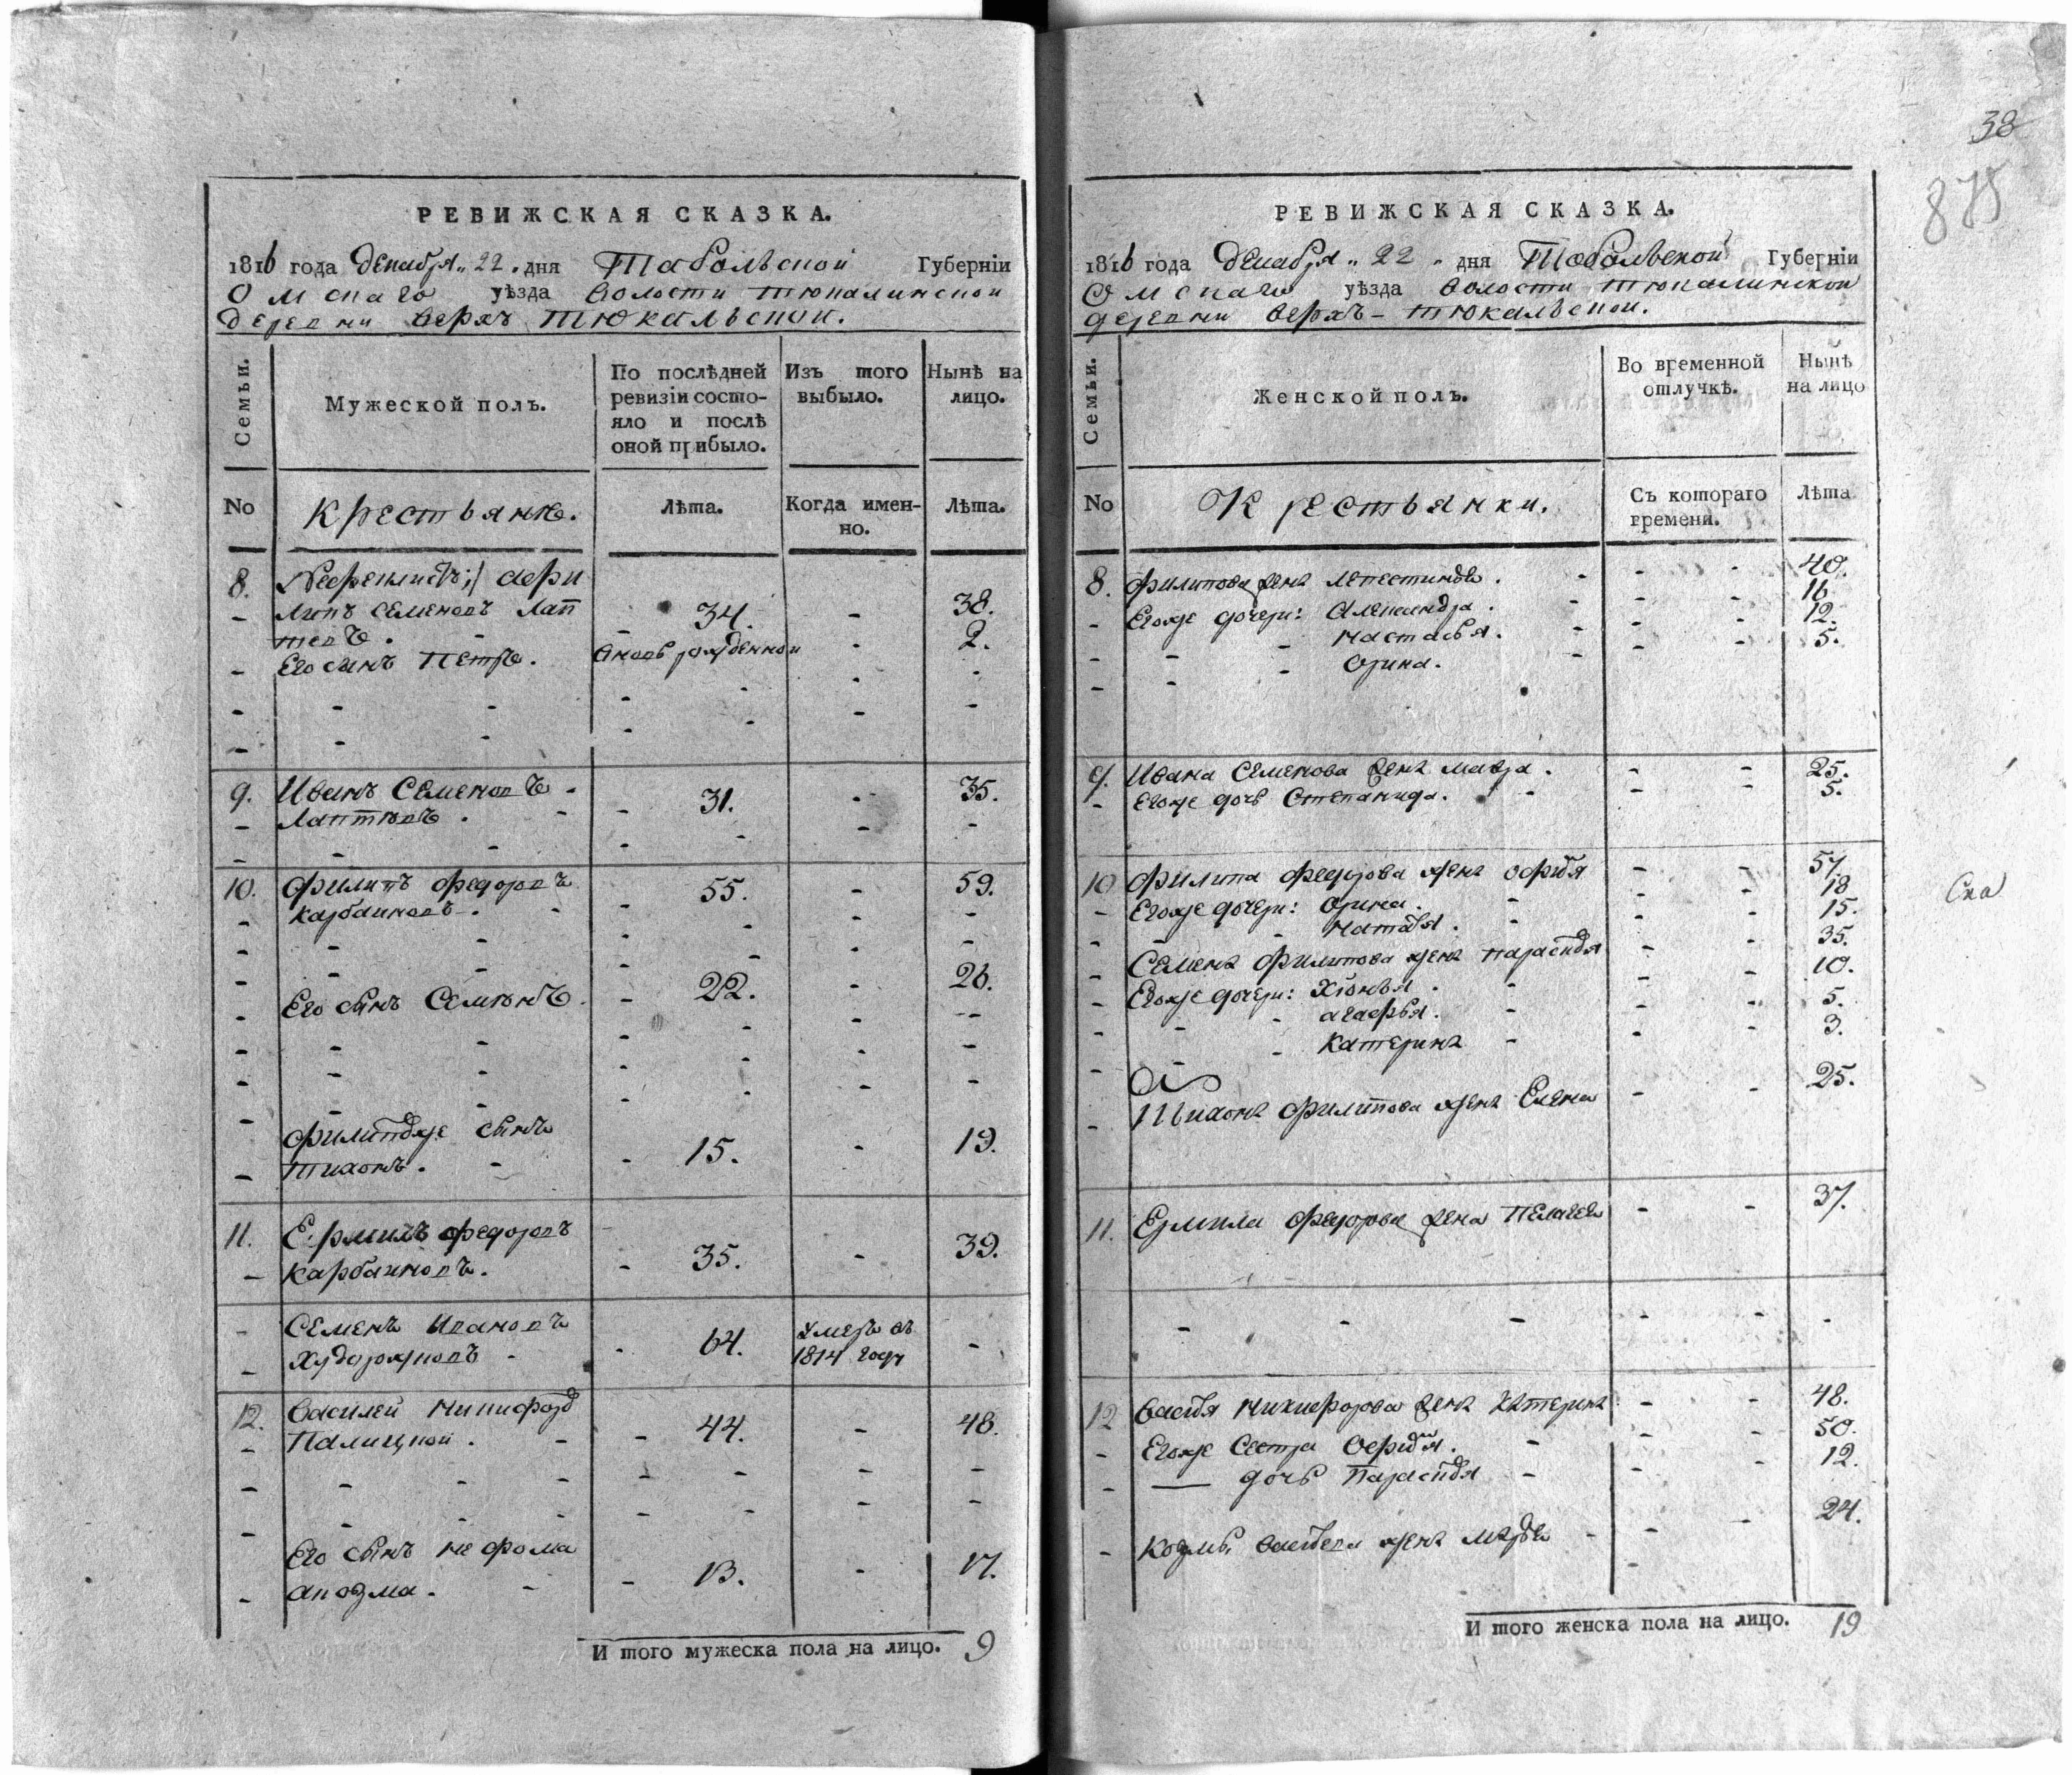 РЕВИЖСКАЯ СКАЗКА.
1816 года декабря 22 дня Тобольской Губерніи
Омскаго уѣзда волости тюкалинской
деревни верхъ тюкальской.
Семьи.
Мужеской полъ.
По послѣдней ревизіи состо-
яло и послѣ
оной прибыло.
Изъ того
выбыло.
Нынѣ на
лицо.
No
Крестьяне.
Лѣта.
Когда имен-
но.
Лѣта.
8. фи
липъ Семеновъ Лап 34. 38.
тевъ.
Его сынъ Петръ. вновь рожденной 2.
9. Иванъ Семеновъ 31. 35.
Лаптевъ.
10. Филипъ Федоровъ 55. 59.
Карбаиновъ.
Его сынъ Семіонъ 22. 26.
Филипов же сынъ
Тихонъ. 15. 19.
11. Ермилъ Федоровъ
Карбаиновъ. 35. 39.
Семенъ Ивановъ 64. умеръ въ
Худорожковъ 1814 году
12. Василей Никифоров
Палицной. 44. 48.
Его сынъ не фома
а козма. 13. 17.
И того мужеска пола на лицо. 9
38
875
РЕВИЖСКАЯ СКАЗКА.
1816 года декабря 22 дня Тобольской Губерніи
Омскаго уѣзда волости тюкалинской
деревни верхъ-тюкальской.
Семьи.
Женской полъ.
Во временной
отлучкѣ.
Нынѣ
на лицо
No
Крестьянки.
Съ котораго
времени.
Лѣта
8. Филипова жена 40.
Егоже дочери: Александра. 16
Настасья. 12.
Орина. 5.
9. Ивана Семенова жена мавра. 25.
Егоже дочь Степанида. 5.
10 Филипа Федорова жена 57.
Егоже дочери: Орина. 18
Наталья. 15.
Семена Филипова жена парасковья 35.
Егоже дочери: Хіонья. 10.
агафья. 5.
Катерина 3.
Тихона Филипова жена Елена 25.
11. Ермила Федорова жена Пелагея 37.
12 Василья Никифорова жена Катерина 48.
Егоже Сестра 50.
дочь Парасковья 12.
Козмы Васильева жена марфа 24.
И того женска пола на лицо. 19
Ска